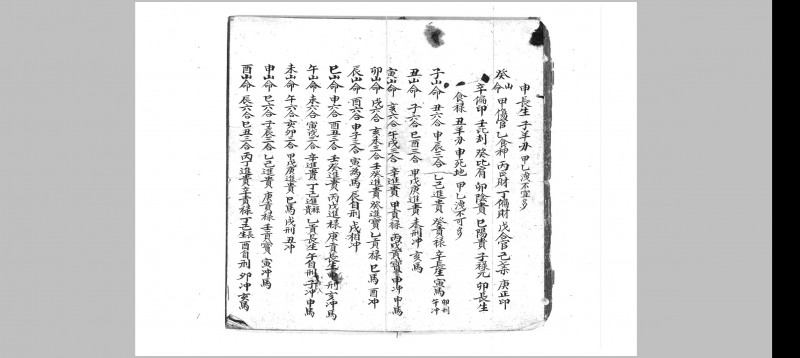 申長生 子羊刃 甲乙洩不宜多
癸山命 甲傷官 乙食神 丙正財 丁偏財 戊合官 己七殺 庚正印
辛偏印 壬比劫 癸比肩 卯陰貴 巳陽貴 子祿元 卯長生
食祿 丑羊刃 申死地 甲乙洩不可多
子山命 丑六合 申辰三合 乙己進貴 癸貴祿 辛長生 寅馬 卯刑 午冲
丑山命 子六合 巳酉三合 甲戊庚進貴 未刑冲 亥馬
寅山命 亥六合 午戌三合 辛進貴 甲貴祿 丙戊貴寶 申冲 申馬
卯山命 戌六合 亥未三合 壬癸進貴 癸進寶 乙貴祿 巳馬 酉冲
辰山命 酉六合 申子三合 寅為馬 辰自刑 戌相冲
巳山命 申六合 酉丑三合 壬癸進貴 丙戊進祿 庚貴長生 申刑 亥冲馬
午山命 未六合 寅戌三合 辛進貴 丁己進祿 乙貴長生 午自刑 子冲 申馬
未山命 午六合 亥卯三合 甲戊庚進貴 巳馬 戌刑 丑冲
申山命 巳六合 子辰三合 乙己進貴 庚貴祿 壬貴寶 寅冲馬
酉山命 辰六合 巳丑三合 丙丁進貴 辛貴祿 丁己生長 酉自刑 卯冲 亥馬